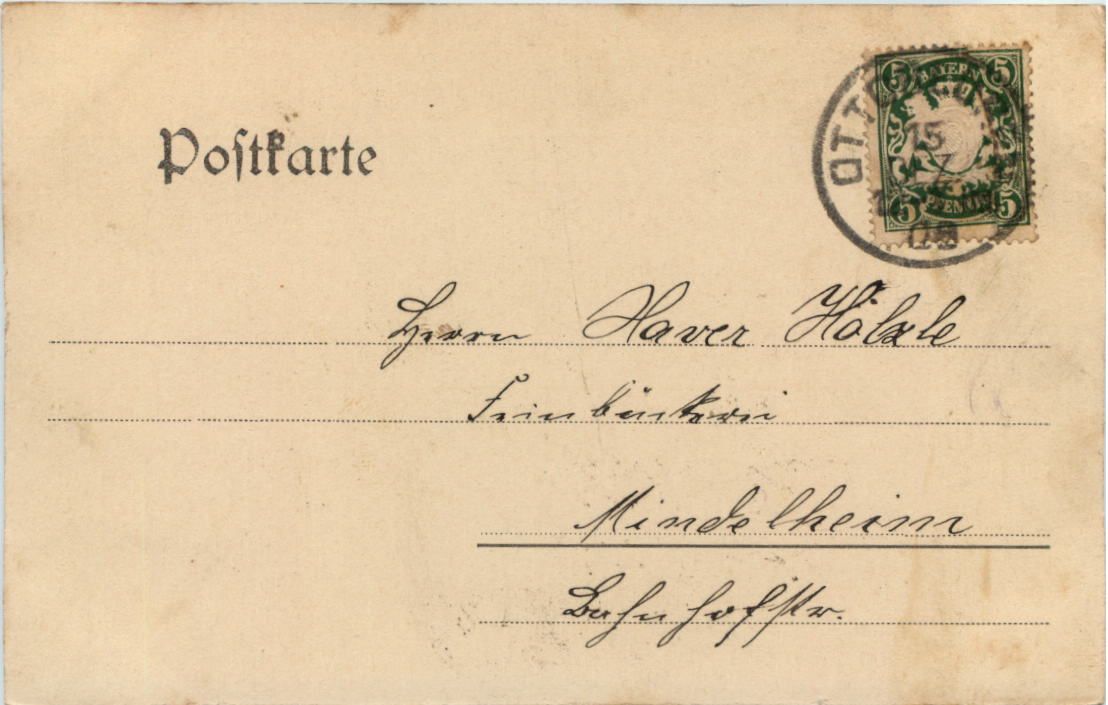 Postkarte
5 BAYERN 5
15
7
5 PFENNIG 5
Herrn Xaver Hölzle
Feinbäckerei
Mindelheim
Bahnhofstr.